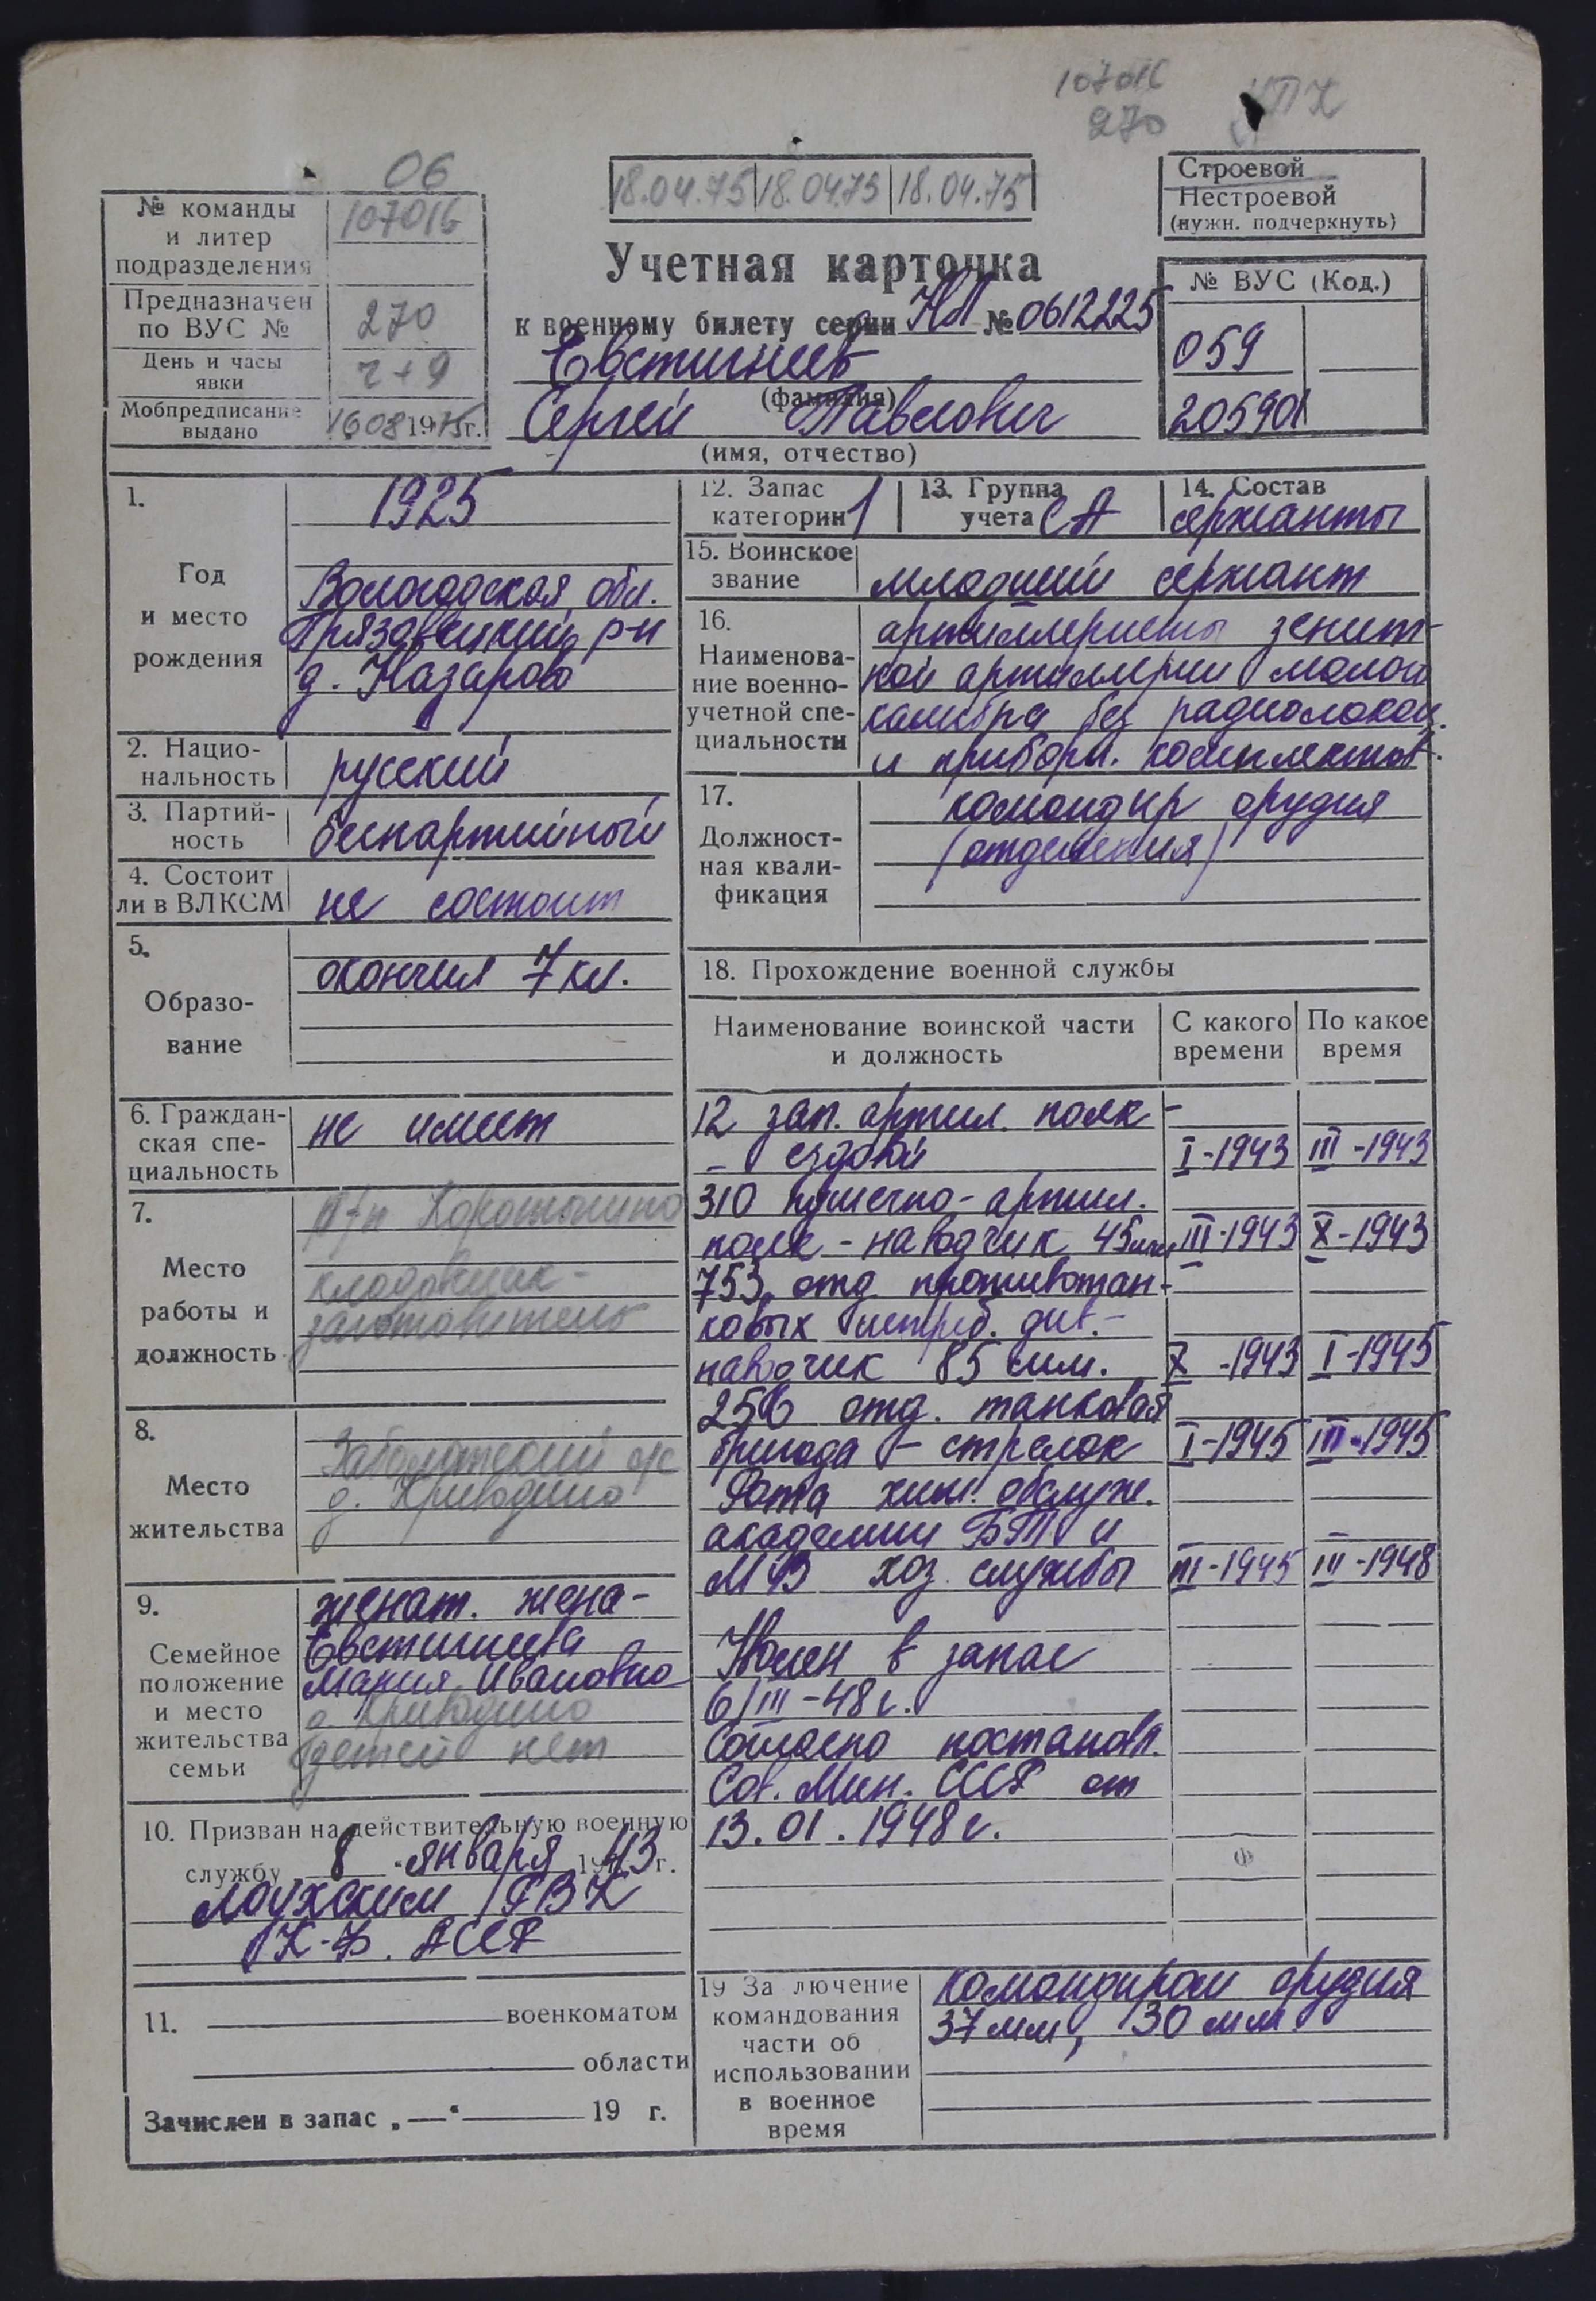 107016
270
УПК
06
18.04.75 18.04.75 18.04.75
Строевой
Нестроевой
(нужн. подчеркнуть)
№ команды
и литер
подразделения
107016
Предназначен
по ВУС №
270
День и часы
явки
Ч+9
Мобпредписание
выдано
1975г.
Учетная карточка
к военному билету серии НЛ № 0612225
Евстигнеев
(фамилия)
Сергей Павлович
(имя, отчество)
№ ВУС (Код.)
059
205901
1.
Год
и место
рождения
1925
Вологодская обл.
Грязовецкий р-н
д. Назарово
2. Нацио-
нальность
русский
3. Партий-
ность
беспартийный
4. Состоит
ли в ВЛКСМ
не состоит
5.
Образо-
вание
окончил 7 кл.
6. Граждан-
ская спе-
циальность
не имеет
7.
Место
работы и
должность
кладовщик-
заготовитель
8.
Место
жительства
Заболотский с/с
д. Криводино
9.
Семейное
положение
и место
жительства
семьи
женат. жена-
Евстигнеева
Мария Ивановна
д. Криводино
детей нет
10. Призван на действительную военную
службу 8 января 1943 г.
Лоухским РВК
К-Ф. АССР
11. военкоматом
области
Зачислен в запас „—“ 19 г.
12. Запас
категории 1
13. Группа
учета СА
14. Состав
сержанты
15. Воинское
звание
младший сержант
16.
Наименова-
ние военно-
учетной спе-
циальности
артиллеристы зенит-
ной артиллерии малого
калибра без радиолокац.
и приборн. комплектов.
17.
Должност-
ная квали-
фикация
командир орудия
(отделения)
18. Прохождение военной службы
Наименование воинской части
и должность
С какого
времени
По какое
время
12 зап. артил. полк-
- ездовой I-1943 III-1943
310 пушечно-артил.
полк - наводчик 45мм III-1943 X-1943
753 отд противотан-
ковых истреб. див.-
наводчик 85 мм. X-1943 I-1945
256 отд. танковая
бригада - стрелок I-1945 III-1945
Рота хим. обслуж.
академии БТ и
МВ хоз. службы III-1945 III-1948
Уволен в запас
6/III-48г.
Согласно постановл.
Сов. Мин. СССР от
13.01.1948г.
19 За лючение
командования
части об
использовании
в военное
время
командиром орудия
37 мм, 30 мм